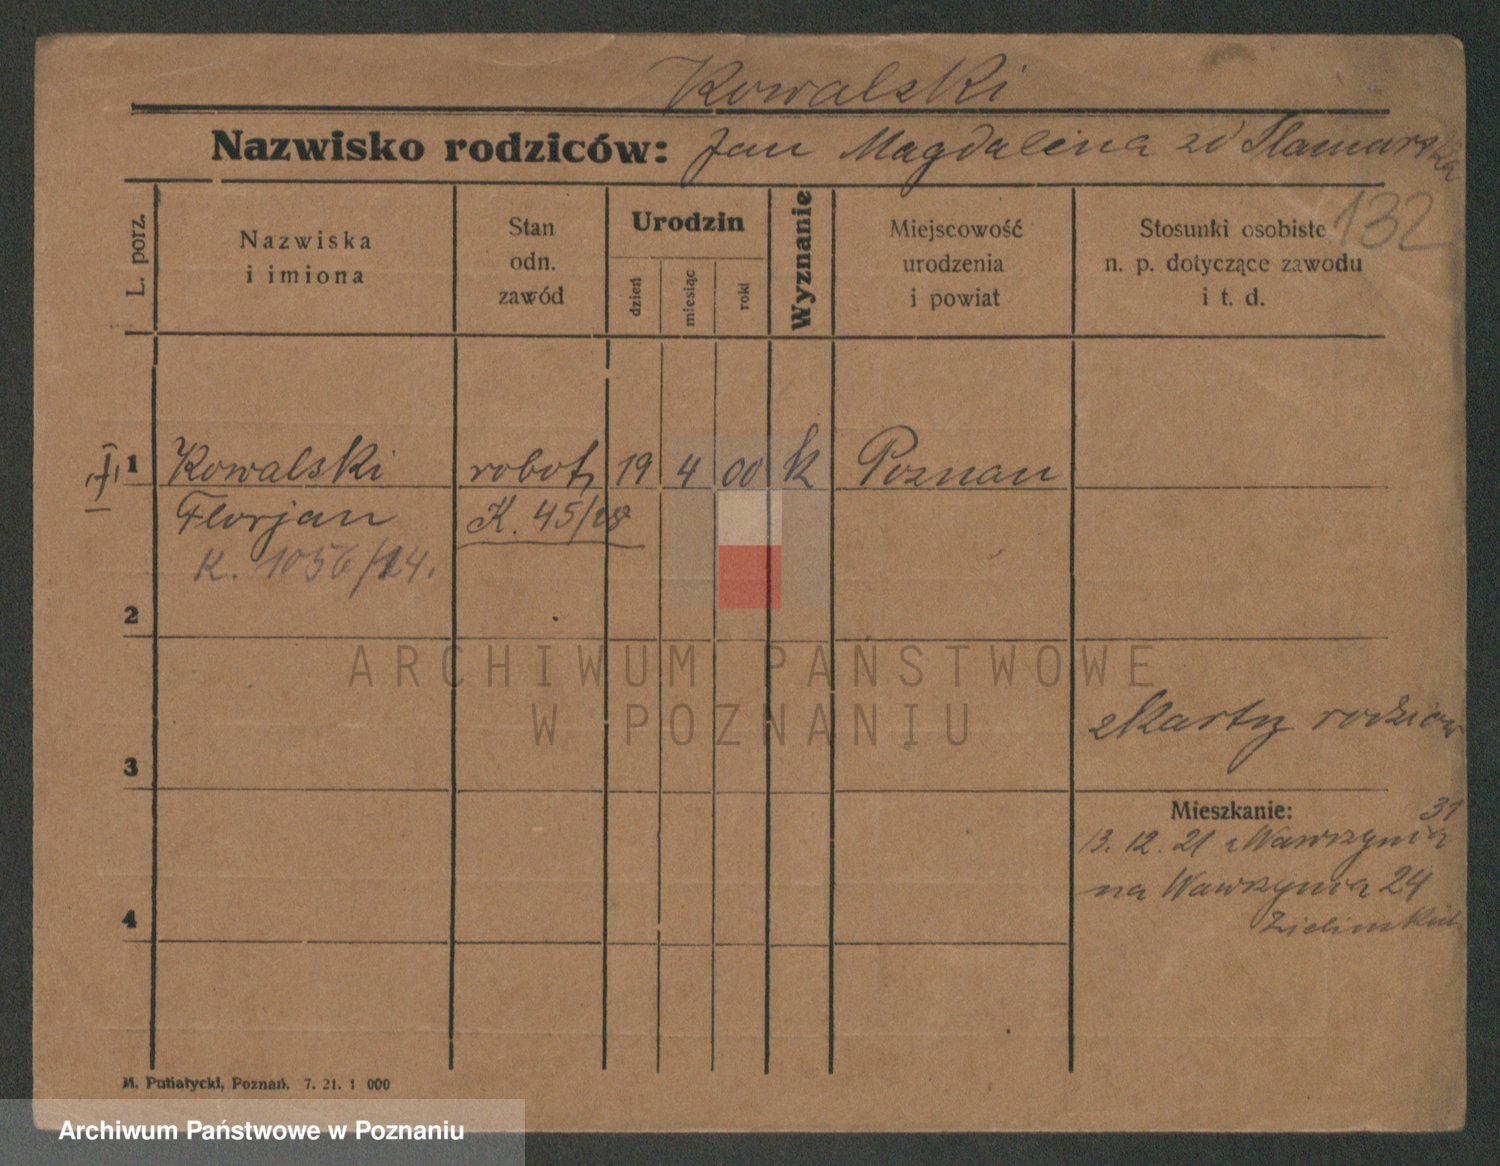 Kowalski
Nazwisko rodziców: Jan Magdalena
132
L. porz.
Nazwiska
i imiona
Stan
odn.
zawód
Urodzin
dzień
miesiąc
rok
Wyznanie
Miejscowość
urodzenia
i powiat
Stosunki osobiste
n. p. dotyczące zawodu
i t. d.
1 Kowalski robot. 19 4 00 k Poznan
Florjan K. 45/28
K. 1056/24.
2
ARCHIWUM PAŃSTWOWE
W POZNANIU
z Karty rodziców
3
Mieszkanie:
31
13. 12. 21 z Wawrzynia
na Wawrzynia 24
4
M. Putiatycki, Poznań. 7. 21. 1 000
Archiwum Państwowe w Poznaniu